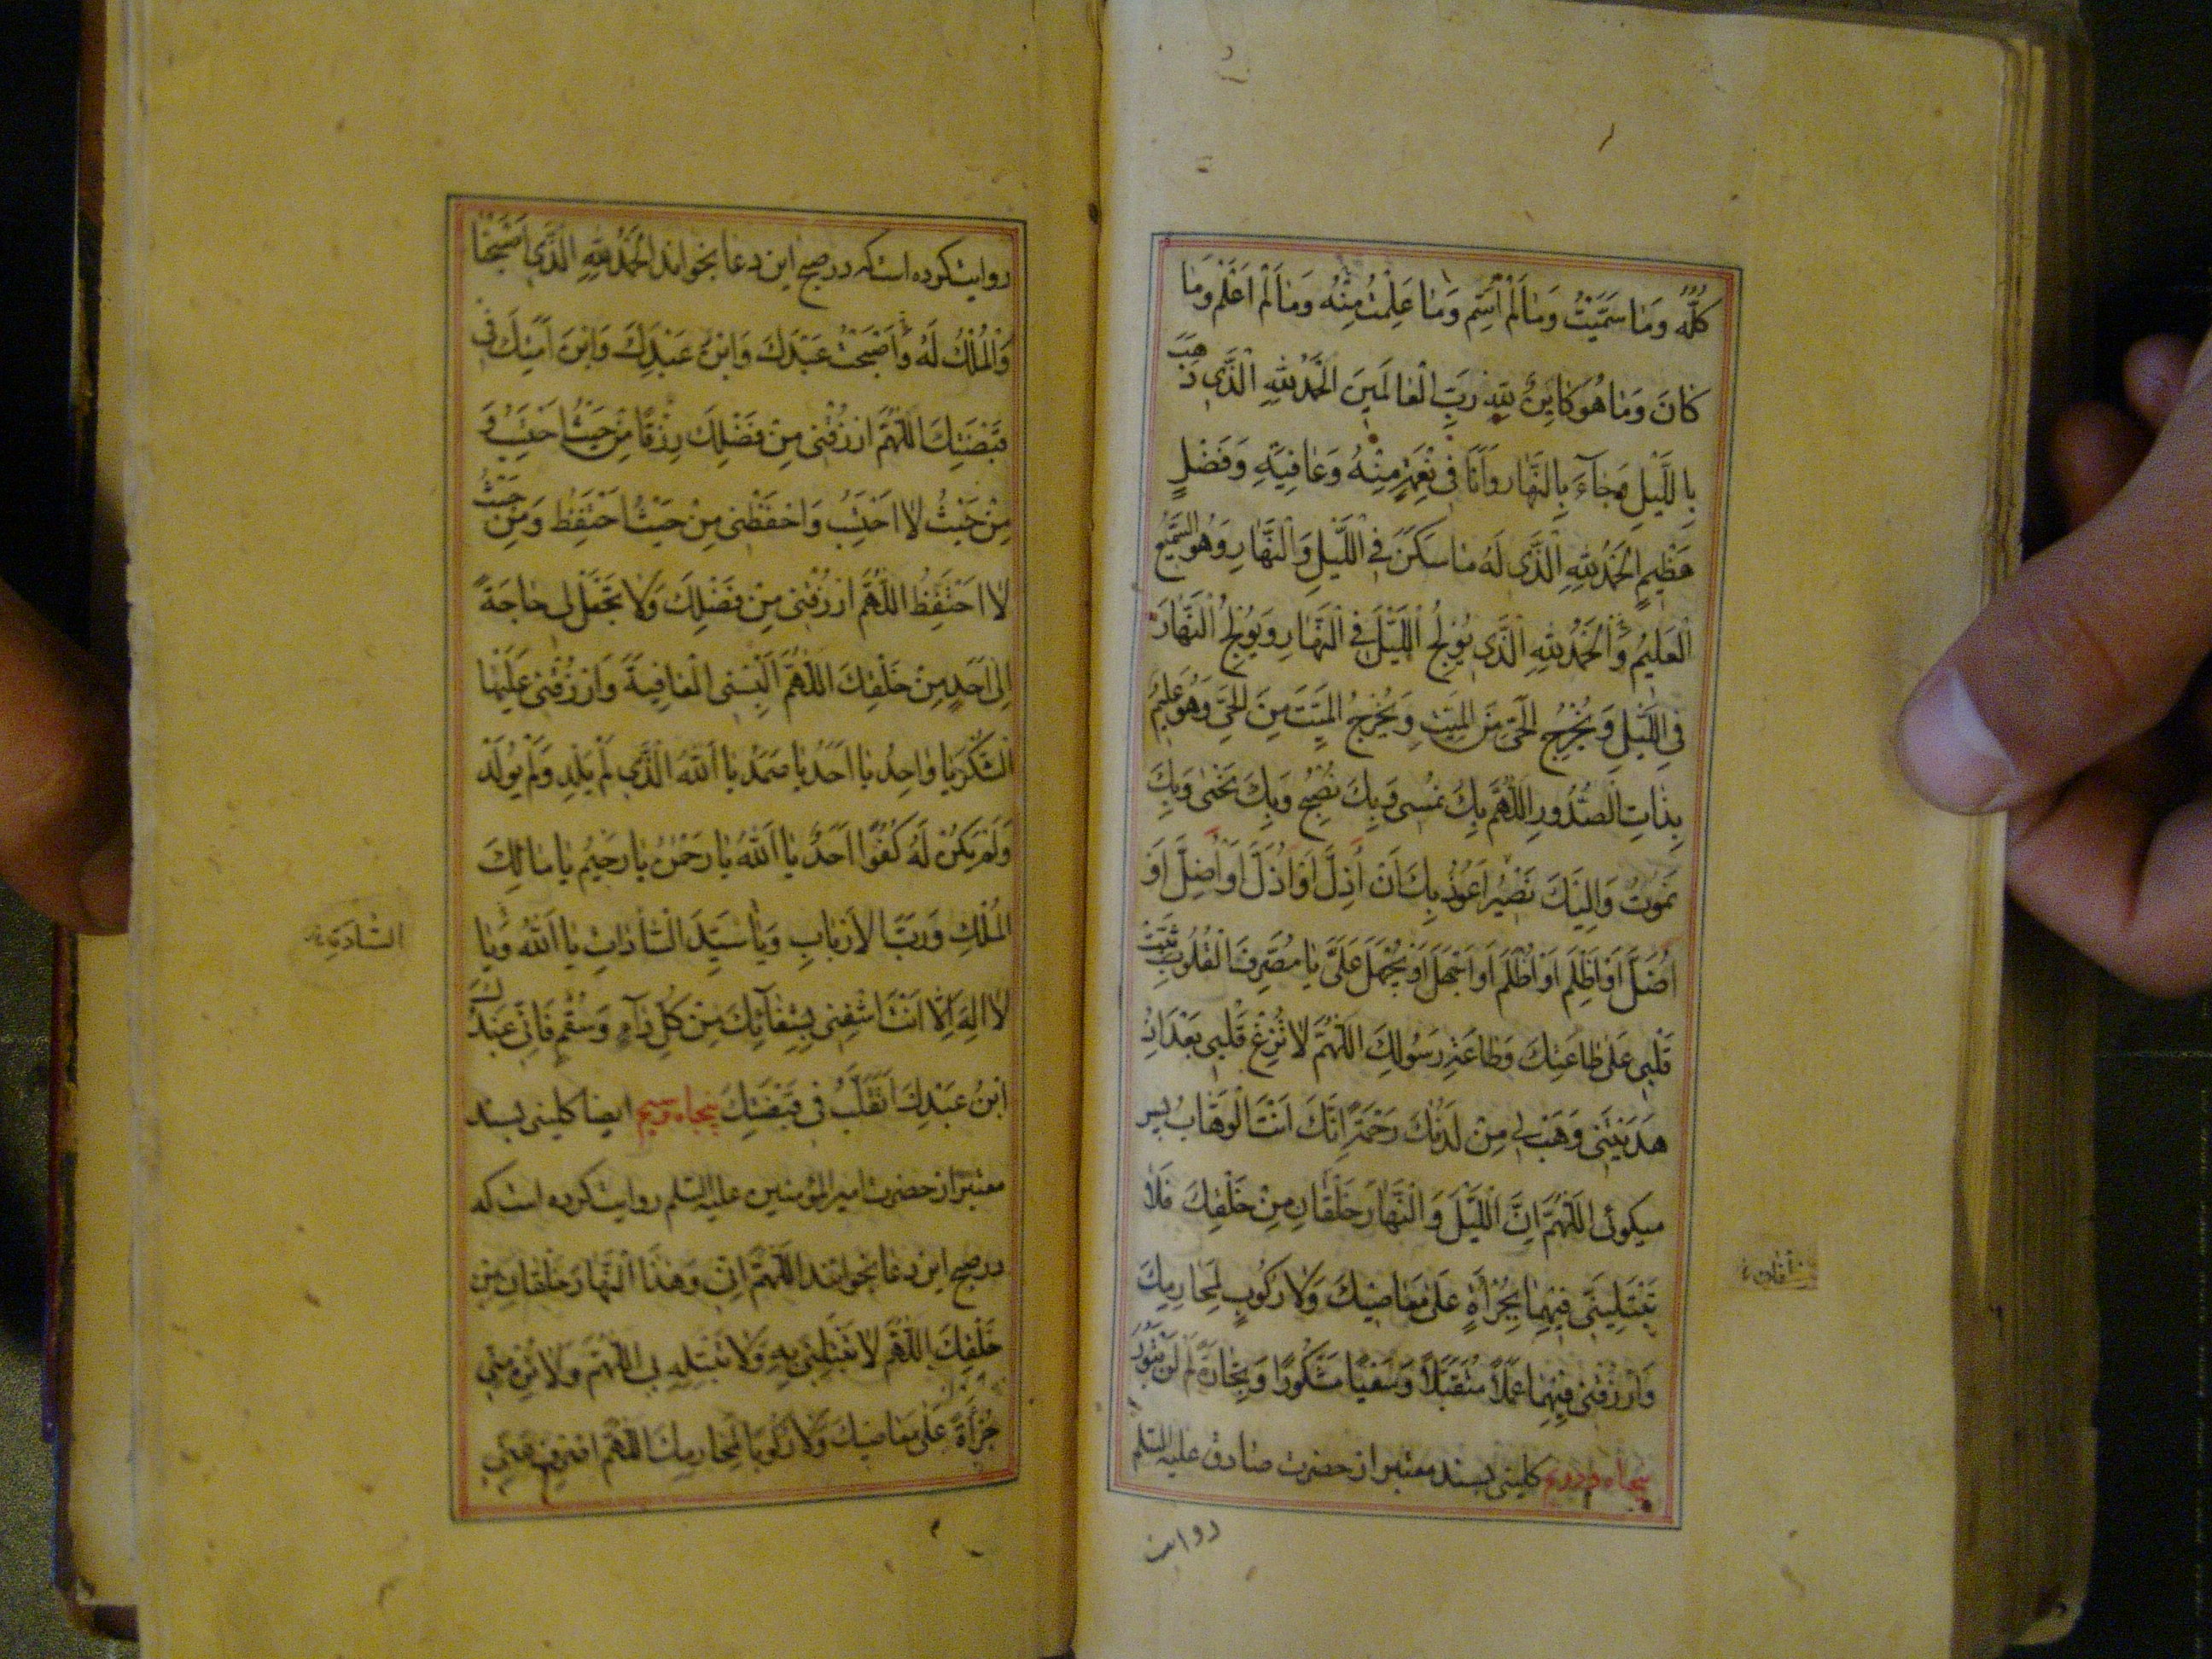 كلّه وَمٰا سَمَّيْتُ وَمٰا لَمْ اُسَمِّ وَمٰا عَلِمْتُ مِنْهُ وَمٰا لَمْ اَعْلَمْ وَمٰا
كٰانَ وَمٰا هُوَ كٰائِنٌ لِلّٰهِ رَبِّ الْعٰالَمينَ الْحَمْدُ لِلّٰهِ الَّذى ذَهَبَ
بِاللَّيْلِ وَجٰآءَ بِالنَّهٰارِ وَاَنَا فى نِعْمَةٍ مِنْهُ وَعٰافِيَةٍ وَفَضْلٍ
عَظيمٍ الْحَمْدُ لِلّٰهِ الَّذى لَهُ مٰا سَكَنَ فِى اللَّيْلِ وَالنَّهٰارِ وَهُوَ السَّميعُ
الْعَليمُ وَالْحَمْدُ لِلّٰهِ الَّذى يُولِجُ اللَّيْلَ فِى النَّهٰارِ وَيُولِجُ النَّهٰارَ
فِى اللَّيْلِ وَيُخْرِجُ الْحَىَّ مِنَ الْمَيِّتِ وَيُخْرِجُ الْمَيِّتَ مِنَ الْحَىِّ وَهُوَ عَليمٌ
بِذٰاتِ الصُّدُورِ اللّٰهُمَّ بِكَ نُمْسى وَبِكَ نُصْبِحُ وَبِكَ نَحْيٰى وَبِكَ
نَمُوتُ وَاِلَيْكَ نَصيرُ اَعُوذُ بِكَ اَنْ اَذِلَّ اَوْ اُذَلَّ اَوْ اَضِلَّ اَوْ
اُضَلَّ اَوْ اَظْلِمَ اَوْ اُظْلَمَ اَوْ اَجْهَلَ اَوْ يُجْهَلَ عَلَىَّ يٰا مُصَرِّفَ الْقُلُوبِ ثَبِّتْ
قَلْبى عَلٰى طٰاعَتِكَ وَطٰاعَةِ رَسُولِكَ اللّٰهُمَّ لاٰ تُزِغْ قَلْبى بَعْدَ اِذْ
هَدَيْتَنى وَهَبْ لى مِنْ لَدُنْكَ رَحْمَةً اِنَّكَ اَنْتَ الْوَهّٰابُ پس
ميكوئى اللّٰهُمَّ اِنَّ اللَّيْلَ وَالنَّهٰارَ خَلْقٰانِ مِنْ خَلْقِكَ فَلاٰ
تَبْتَلِيَنّى فيهِمٰا بِجُرْأَةٍ عَلٰى مَعٰاصيكَ وَلاٰ رُكُوبٍ لِمَحٰارِمِكَ
وَارْزُقْنى فيهِمٰا عَمَلاً مُتَقَبَّلاً وَسَعْيًا مَشْكُورًا وَتِجٰارَةً لَنْ تَبُورَ
پنجاه ودويم كلينى بسند معتبر از حضرت صادق عليه السلم
روايت
روايت كرده است كه در صبح اين دعا بخواند الْحَمْدُ لِلّٰهِ الَّذى اَصْبَحْنٰا
وَالْمُلْكُ لَهُ وَاَصْبَحْتُ عَبْدَكَ وَابْنَ عَبْدِكَ وَابْنَ اَمَتِكَ فى
قَبْضَتِكَ اللّٰهُمَّ ارْزُقْنى مِنْ فَضْلِكَ رِزْقًا مِنْ حَيْثُ اَحْتَسِبُ وَ
مِنْ حَيْثُ لاٰ اَحْتَسِبُ وَاحْفَظْنى مِنْ حَيْثُ اَحْتَفِظُ وَمِنْ حَيْثُ
لاٰ اَحْتَفِظُ اللّٰهُمَّ ارْزُقْنى مِنْ فَضْلِكَ وَلاٰ تَجْعَلْ لى حٰاجَةً
اِلٰى اَحَدٍ مِنْ خَلْقِكَ اللّٰهُمَّ اَلْبِسْنِى الْعٰافِيَةَ وَارْزُقْنى عَلَيْهَا
الشُّكْرَ يٰا وٰاحِدُ يٰا اَحَدُ يٰا صَمَدُ يٰا اَللّٰهُ الَّذى لَمْ يَلِدْ وَلَمْ يُولَدْ
وَلَمْ يَكُنْ لَهُ كُفُوًا اَحَدٌ يٰا اَللّٰهُ يٰا رَحْمٰنُ يٰا رَحيمُ يٰا مٰالِكَ
الْمُلْكِ وَرَبَّ الْاَرْبٰابِ وَيٰا سَيِّدَ السّٰادٰاتِ يٰا اَللّٰهُ وَيٰا
لاٰ اِلٰهَ اِلّٰا اَنْتَ اشْفِنى بِشِفٰآئِكَ مِنْ كُلِّ دٰآءٍ وَسُقْمٍ فَاِنّى عَبْدُكَ
ابْنُ عَبْدِكَ اَتَقَلَّبُ فى قَبْضَتِكَ پنجاه وسيم ايضا كلينى بسند
معتبر از حضرت امير المؤمنين عليه السلم روايت كرده است كه
در صبح اين دعا بخوانند اللّٰهُمَّ اِنّى وَهٰذَا النَّهٰارَ خَلْقٰانِ مِنْ
خَلْقِكَ اللّٰهُمَّ لاٰ تَبْتَلِنى بِهِ وَلاٰ تَبْتَلِهِ بى اللّٰهُمَّ وَلاٰ تُرِهِ مِنّى
جُرْأَةً عَلٰى مَعٰاصيكَ وَلاٰ رُكُوبًا لِمَحٰارِمِكَ اللّٰهُمَّ اصْرِفْ عَنّى